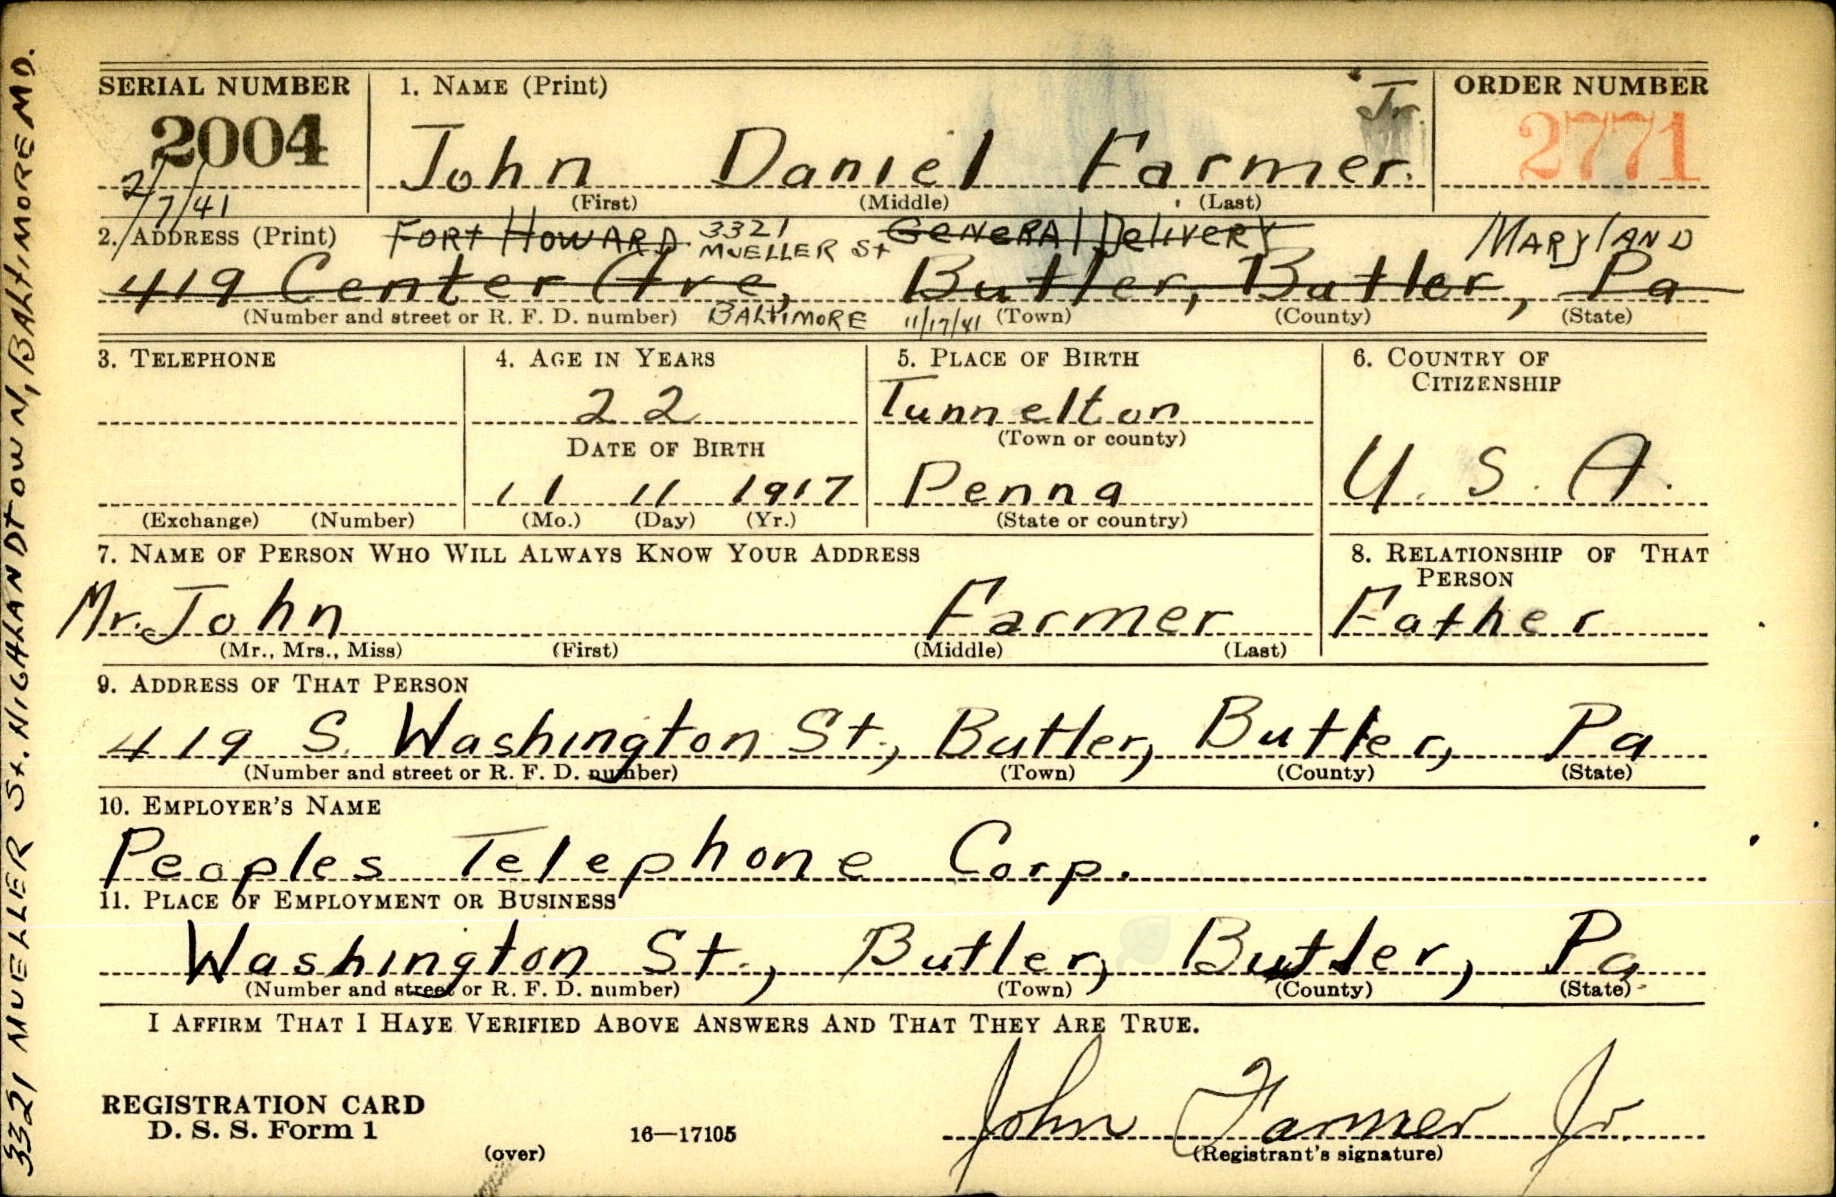 SERIAL NUMBER
2004
2/7/41
1. NAME (Print)
Jr.
John Daniel Farmer.
(First) (Middle) (Last)
ORDER NUMBER
2771
2. ADDRESS (Print)
FORT HOWARD 3321 MUELLER St GENERAL DELIVERY MARYLAND
419 Center Ave, Butler, Butler, Pa
(Number and street or R. F. D. number) BALTIMORE 11/17/41 (Town) (County) (State)
3. TELEPHONE
(Exchange) (Number)
4. AGE IN YEARS
22
DATE OF BIRTH
11 11 1917
(Mo.) (Day) (Yr.)
5. PLACE OF BIRTH
Tunnelton
(Town or county)
Penna
(State or country)
6. COUNTRY OF
CITIZENSHIP
U. S. A.
7. NAME OF PERSON WHO WILL ALWAYS KNOW YOUR ADDRESS
Mr. John Farmer
(Mr., Mrs., Miss) (First) (Middle) (Last)
8. RELATIONSHIP OF THAT
PERSON
Father
9. ADDRESS OF THAT PERSON
419 S. Washington St., Butler, Butler, Pa
(Number and street or R. F. D. number) (Town) (County) (State)
10. EMPLOYER'S NAME
Peoples Telephone Corp.
11. PLACE OF EMPLOYMENT OR BUSINESS
Washington St., Butler, Butler, Pa
(Number and street or R. F. D. number) (Town) (County) (State)
I AFFIRM THAT I HAVE VERIFIED ABOVE ANSWERS AND THAT THEY ARE TRUE.
REGISTRATION CARD
D. S. S. Form 1
(over)
16—17105
John Farmer Jr.
(Registrant's signature)
3321 MUELLER St. HIGHLANDTOWN, BALTIMORE MD.